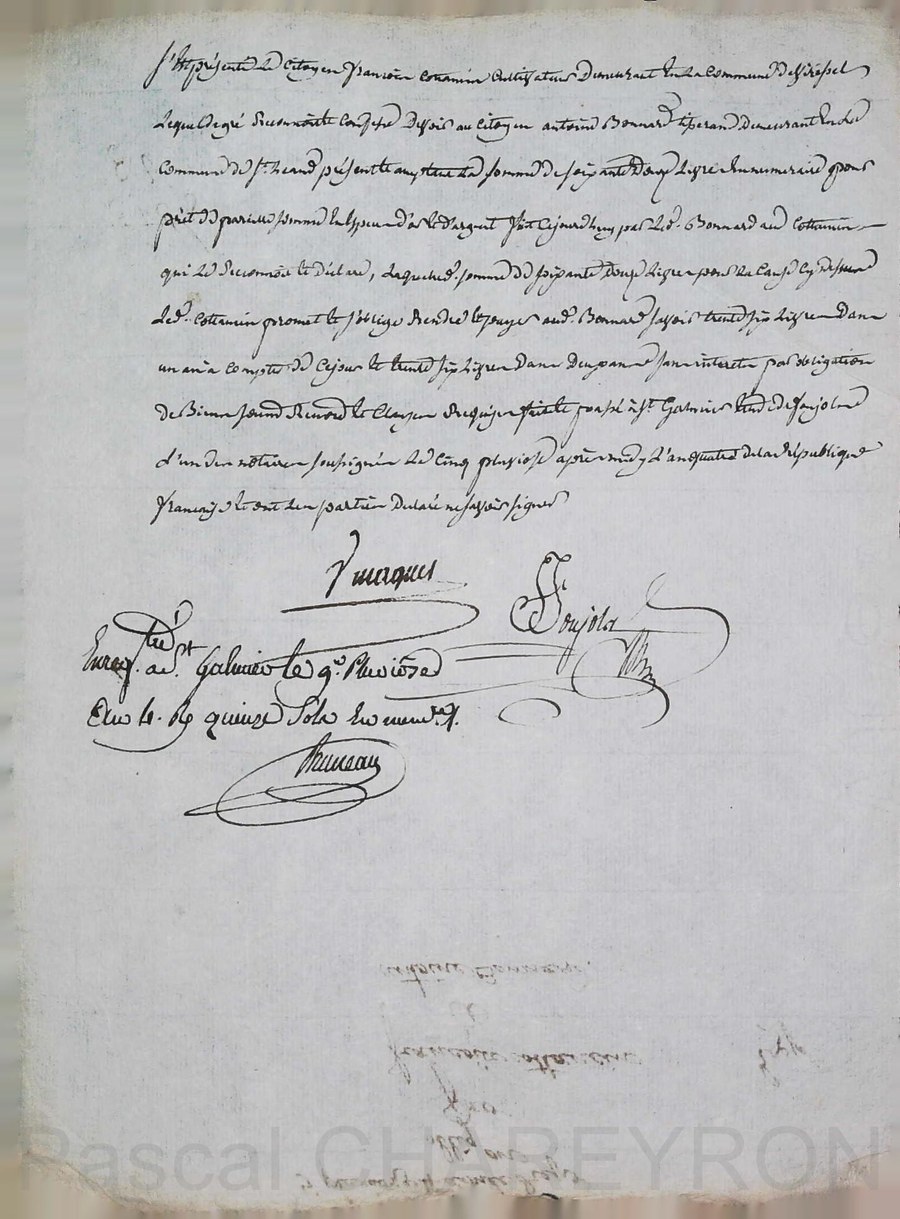 S'est présenté Le Citoyen françois cottancin Cultivateur Demeurant En La Commune de
Lequel de gré Reconnoit et Confesse Devoir au Citoyen antoine Bonnard Demeurant En La
Commune de St. présent et La somme de soixante Douze Livres En numeraire pour
prêt de pareille somme En Espece d'or et d'argent fait Cejourdhuy par Led. Bonnard aud Cottancin
qui Le Reconnoit et Déclare, Laquelle d. somme de soixante Douze Livres pour La Cause Cy dessus
Led. Cottancin promet et s'oblige Rendre et payer aud. Bonnard savoir trente six Livres Dans
un an a Compter de Cejour et trente six Livres Dans Deux ans sans interets par obligation
de Biens soumd Renond et Clauses Requises fait et passé à St. Galmier Etude de Foujols
L'un des notaires soussignés Le Cinq pluviose après midy L'an quatre de la République
françoise et ont Les parties Déclaré ne savoir signer
Foujols
Enregtré a St. Galmier le 9e. Pluviôse
An 4. Rç quinze Sols En
Bruneau
antoine Bonnard
françois cottancin
Pascal CHAREYRON